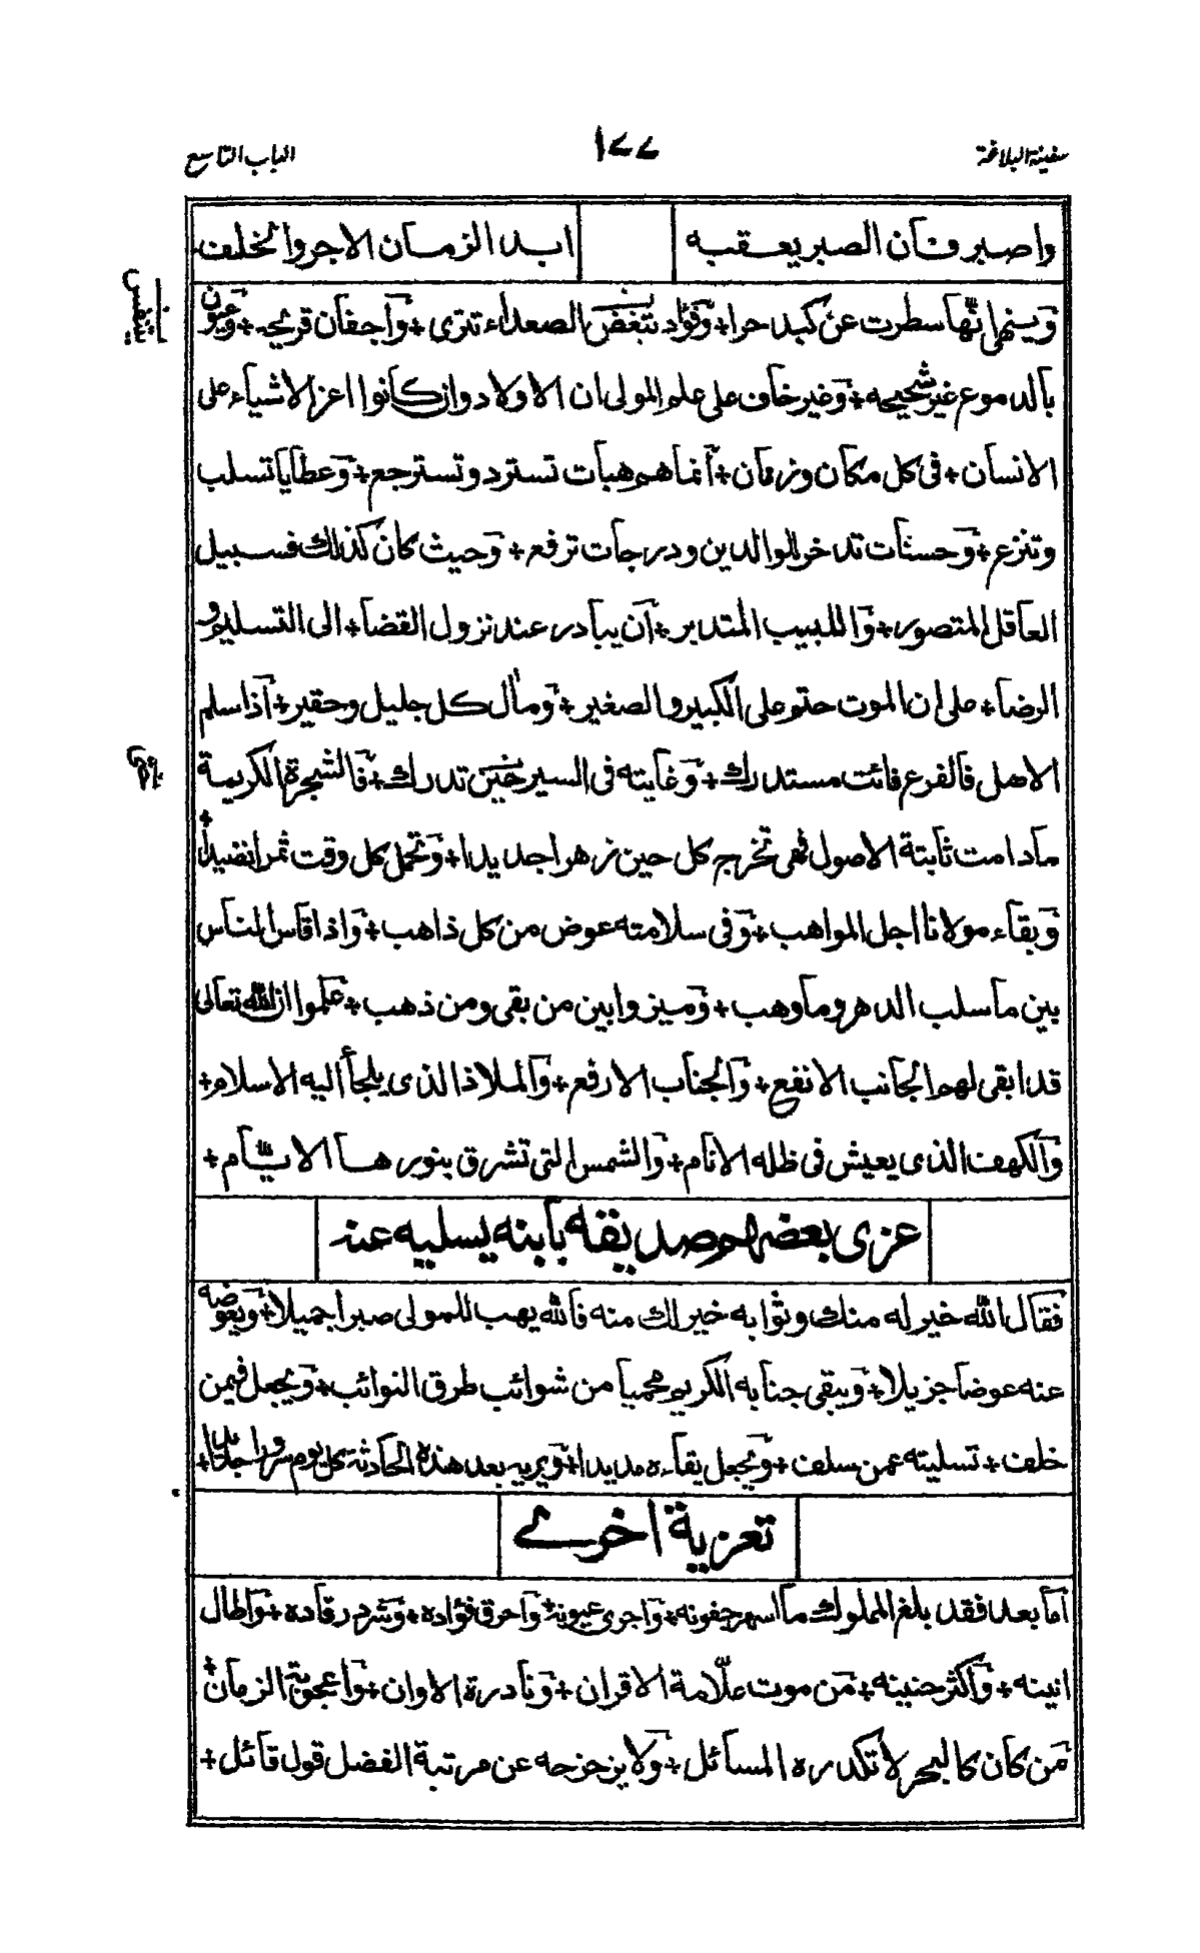 سفينة البلاغة
١٧٧
الباب التاسع
واصبر فان الصبر يعقبه ابد الزمان الاجر والخلف
وينهى انها سطرت عن كبد حرا + وفؤاد بتغض الصعداء تترى + واجفان قريحه + وعيون
بتنفس
بالدموع غير شحيحه + وغير خاف على علم المولى ان الاولاد وان كانوا اعز الاشياء على
الانسان + فى كل مكان وزمان + انما هم هبات تسترد وتسترجع + وعطايا تسلب
وتنزع + وحسنات تدخر للوالدين ودرجات ترفع + وحيث كان كذلك فسبيل
العاقل المتصور + واللبيب المتدبر + ان يبادر عند نزول القضا + الى التسليم و
الرضا + على ان الموت حتم على الكبير والصغير + ومال كل جليل وحقير + اذا سلم
الاصل فالفرع فائت مستدرك + وغايته فى السير حين تدرك + فالشجرة الكريمة
مادامت ثابتة الاصول فهى تخرج كل حين زهرا جديدا + وتحمل كل وقت ثمرا نضيدا +
وبقاء مولانا اجل المواهب + وفى سلامته عوض من كل ذاهب + واذا قاس الناس
بين ما سلب الدهر وما وهب + وميزوا بين من بقى ومن ذهب + علموا ان الله تعالى
قد ابقى لهم الجانب الانفع + والجناب الارفع + والملاذ الذى يلجأ اليه الاسلام +
والكهف الذى يعيش فى ظله الانام + والشمس التى تشرق بنورها الايام +
عزى بعضهم صديقه بابنه يسليه عنه
فقال الله خير له منك وثوابه خير لك منه فالله يهب للمولى صبرا جميلا + ويعوضه
عنه عوضا جزيلا + ويبقى جنابه الكريم محميا من شوائب طرق النوائب + ويجعل فيمن
خلف + تسليته عمن سلف + ويجعل بقاءه مديدا + ويريه بعد هذه الحادثة كل يوم سرورا جديدا +
تعزية اخرى
اما بعد فقد بلغ المملوك ما اسهر جفونه + واجرى عيونه + واحرق فؤاده + وشرد رقاده + واطال
انينه + واكثر حنينه + من موت علّامة الاقران + ونادرة الاوان + واعجوبة الزمان +
من كان كالبحر لا تكدره المسائل + ولا يزحزحه عن مرتبة الفضل قول قائل +